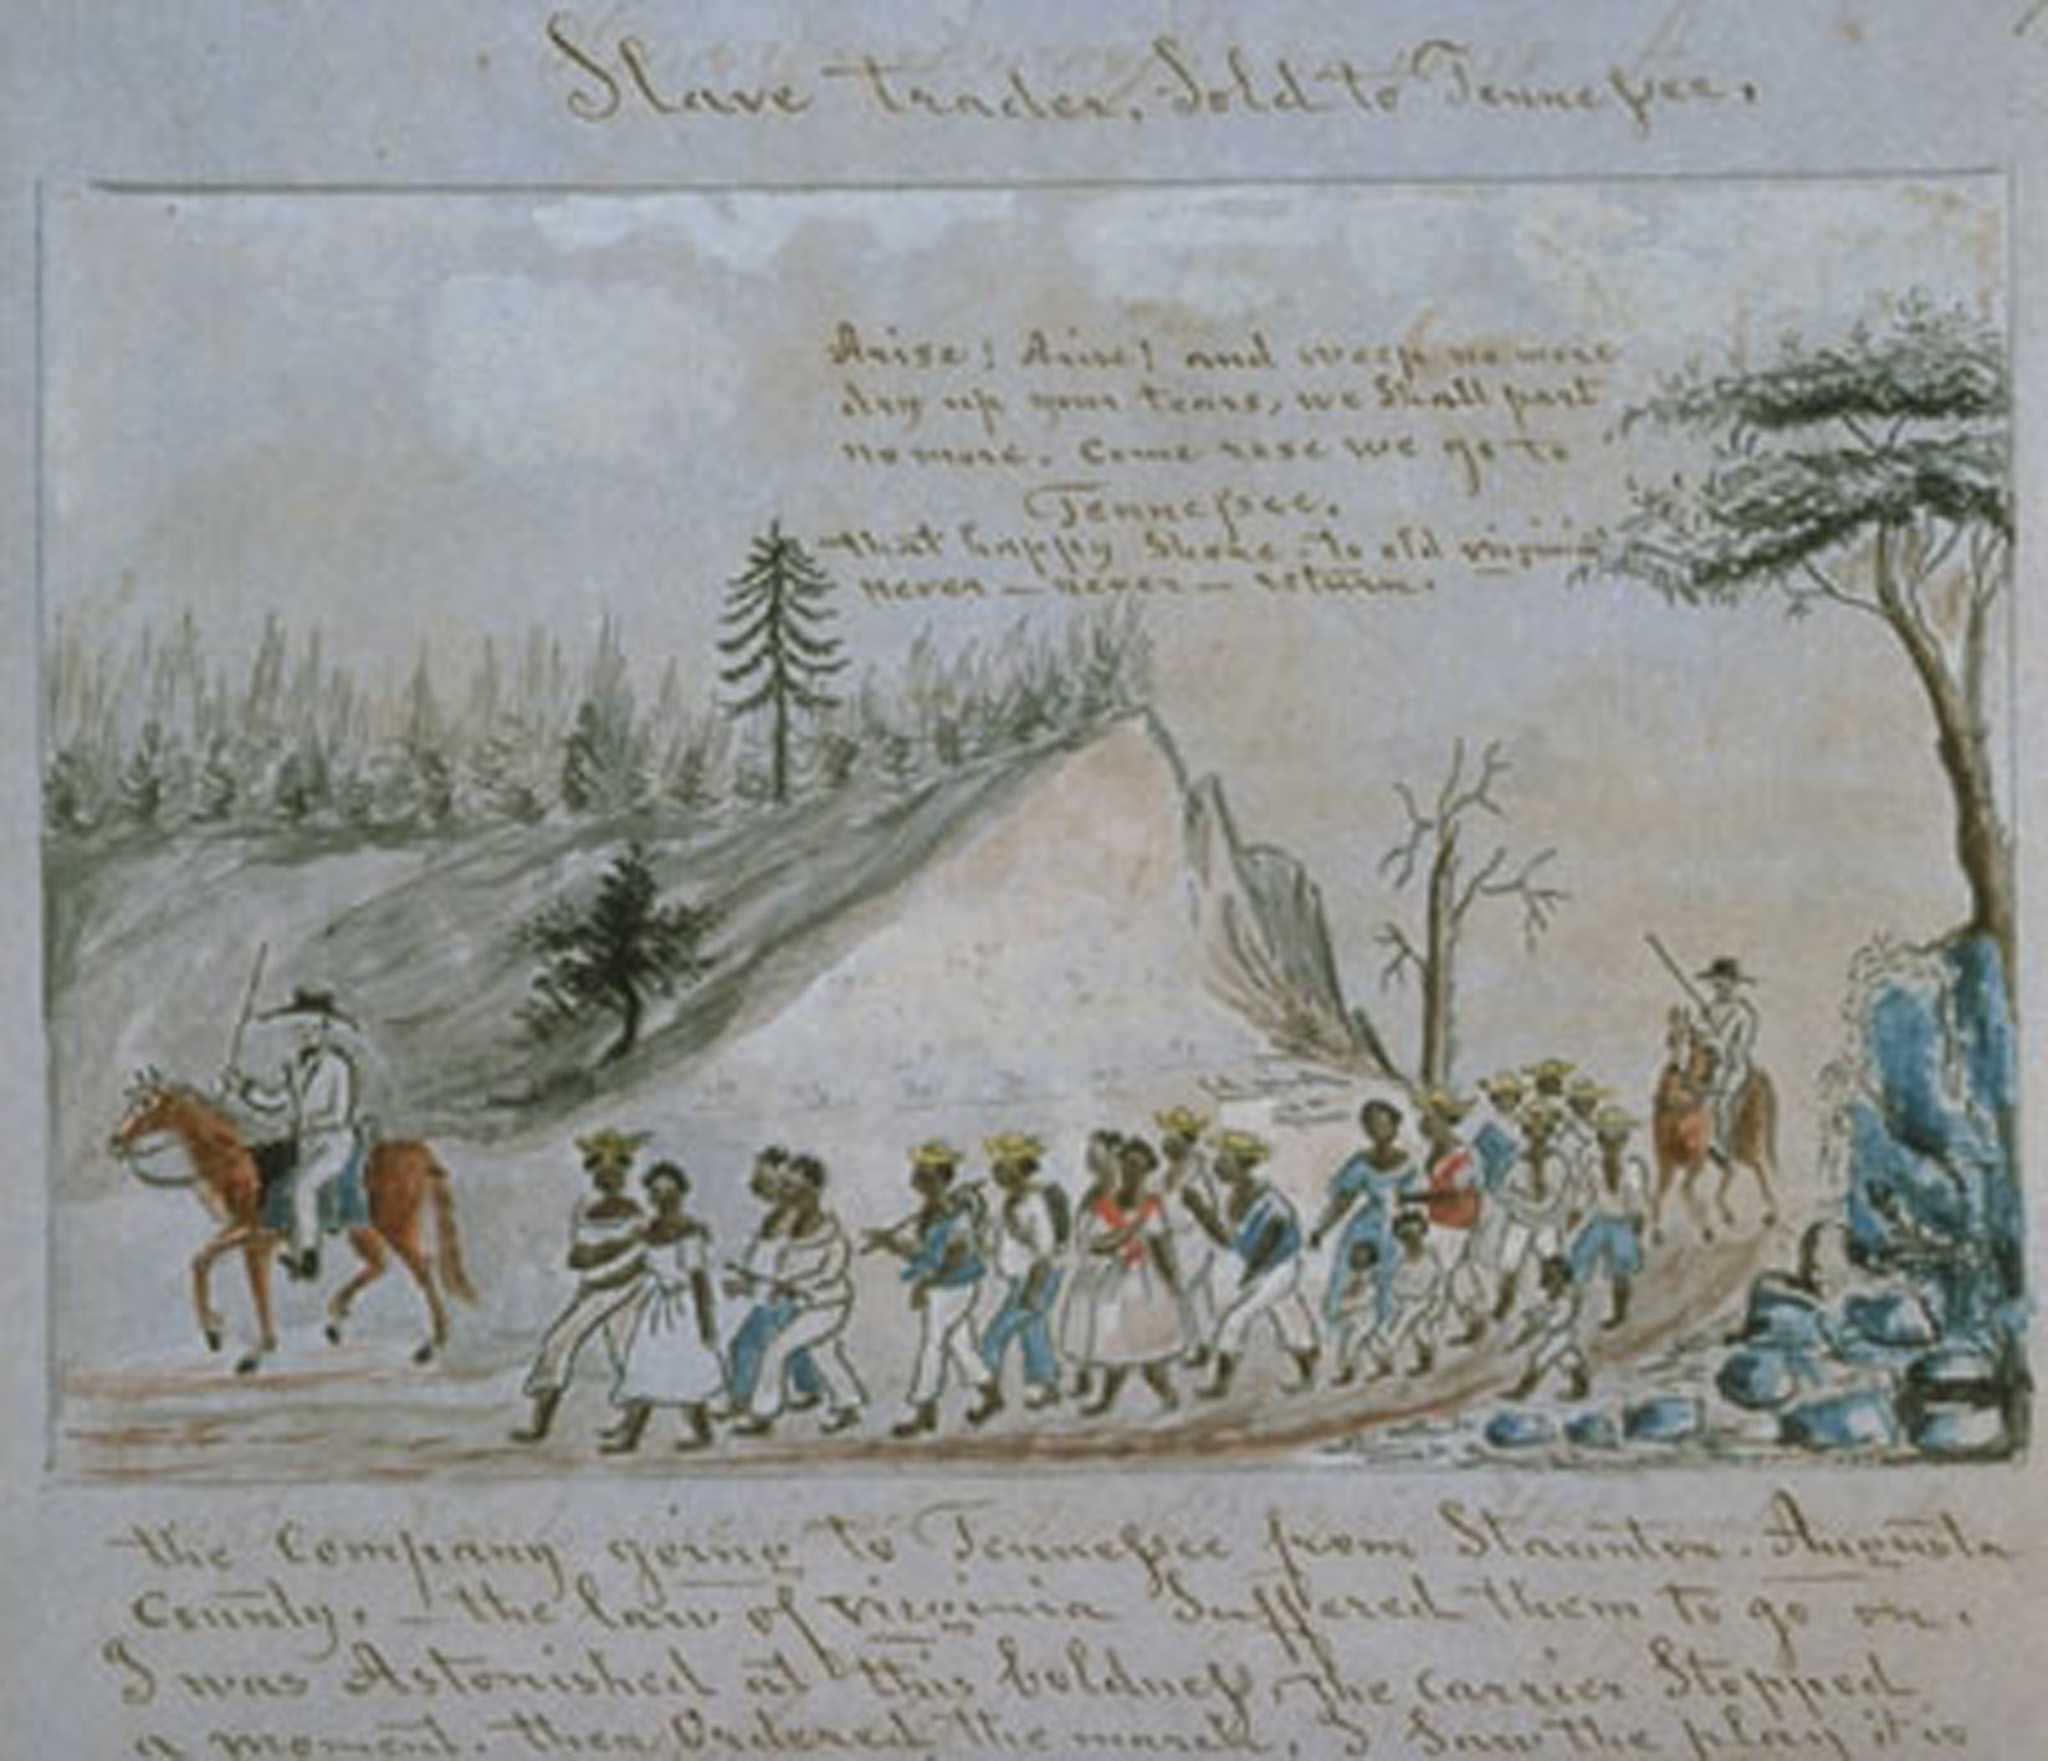 Slave trader, Sold to Tennessee.
Arise! Arise! and weep no more
dry up your tears, we Shall part
no more. Come rose we go to
Tennessee.
that happy Shore. to old virginia
never — never — return.
the Company going to Tennessee from Staunton. Augusta
County. — the law of virginia Suffered them to go on.
I was Astonished at this boldness, the carrier Stopped
a moment. then Ordered the march, I Saw the play it is